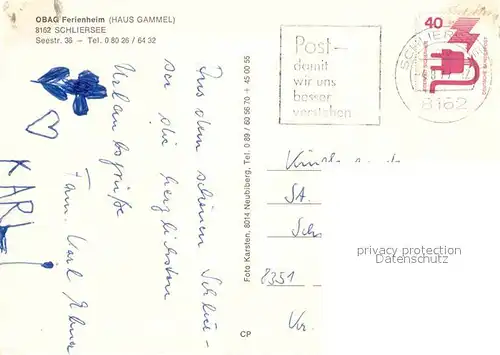 OBAG Ferienheim (HAUS GAMMEL)
8162 SCHLIERSEE
Seestr. 36 - Tel. 0 80 26 / 64 32
Aus dem schönen Schlier-
see die herzlichsten
Urlaubsgrüße
Fam. Karl
KARL
Foto Karsten, 8014 Neubiberg, Tel. 0 89 / 60 96 70 + 45 00 55
CP
Post-
damit
wir uns
besser
verstehen
SCHLIERSEE
8162
40
8351
Kr.
privacy protection
Datenschutz